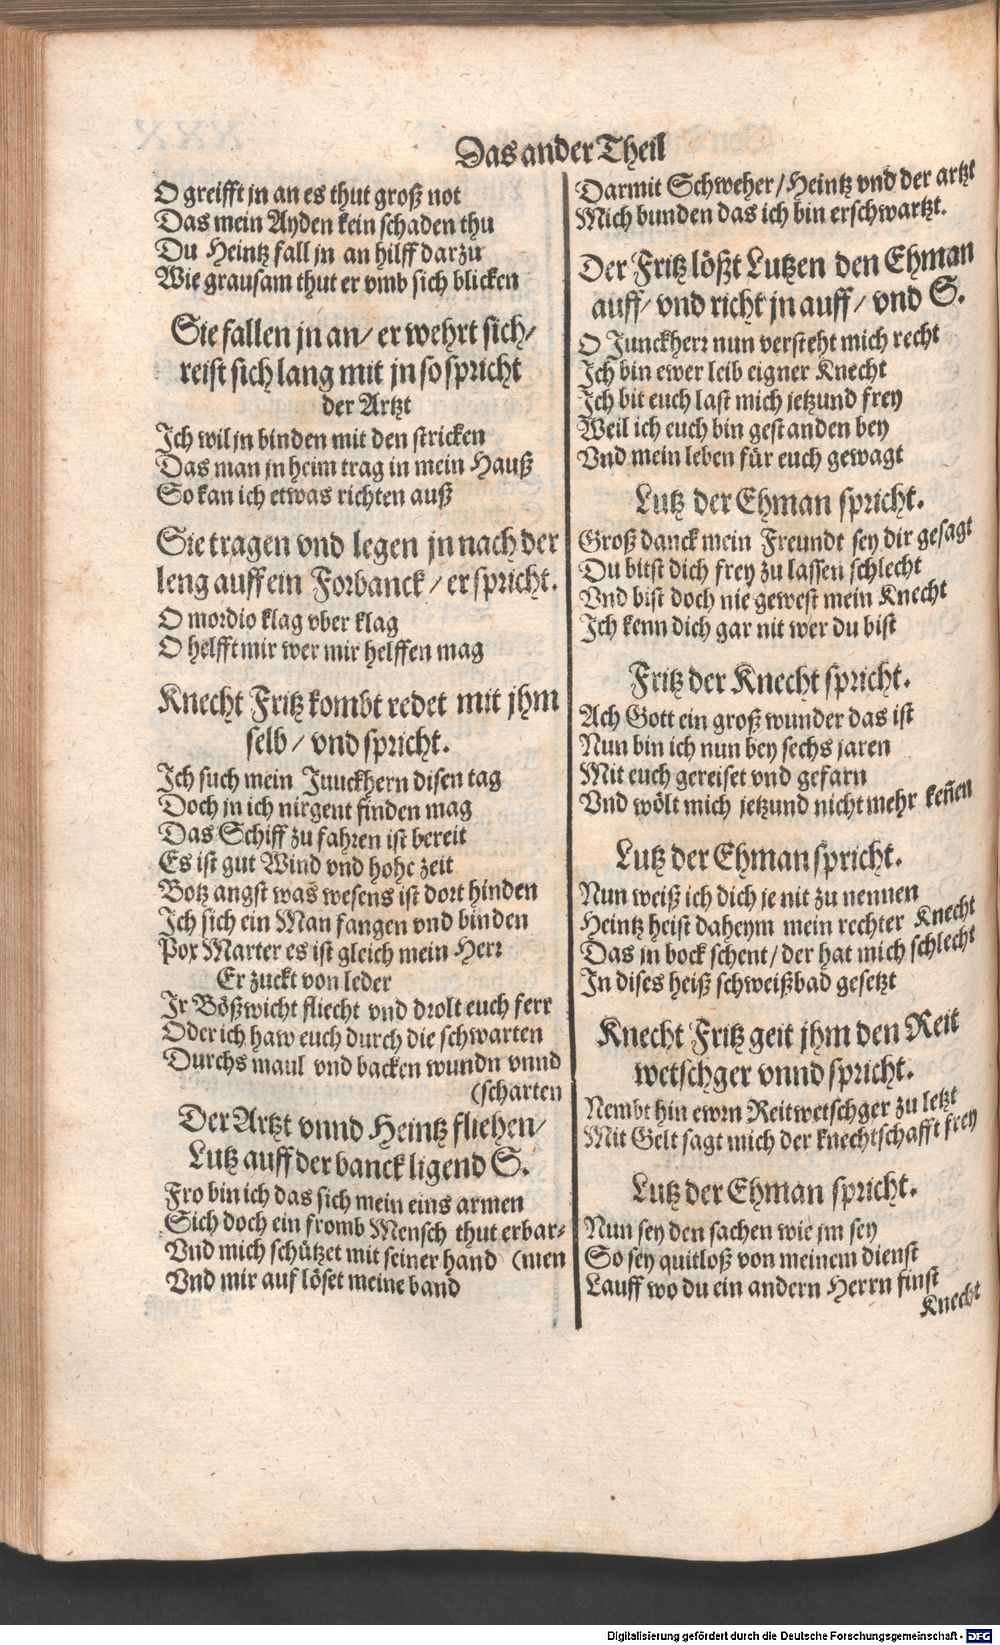 Das ander Theil
O greifft jn an es thut groß not
Das mein Ayden kein schaden thu
Du Heintz fall jn an hilff darzu
Wie grausam thut er vmb sich blicken
Sie fallen jn an/ er wehrt sich/
reist sich lang mit jn so spricht
der Artzt
Ich wil jn binden mit den stricken
Das man jn heim trag in mein Hauß
So kan ich etwas richten auß
Sie tragen vnd legen jn nach der
leng auff ein Forbanck / er spricht.
O mordio klag vber klag
O helfft mir wer mir helffen mag
Knecht Fritz kombt redet mit jhm
selb / vnd spricht.
Ich such mein Juuckhern disen tag
Doch jn ich nirgent finden mag
Das Schiff zu fahren ist bereit
Es ist gut Wind vnd hohe zeit
Botz angst was wesens ist dort hinden
Ich sich ein Man fangen vnd binden
Pox Marter es ist gleich mein Herr
Er zuckt von leder
Jr Bößwicht fliecht vnd drolt euch ferr
Oder ich haw euch durch die schwarten
Durchs maul vnd backen wundn vnnd
(scharten
Der Artzt vnnd Heintz fliehen/
Lutz auff der banck ligend S.
Fro bin ich das sich mein eins armen
Sich doch ein fromb Mensch thut erbar-
Vnd mich schützet mit seiner hand (men
Vnd mir auf löset meine band
Darmit Schweher/Heintz vnd der artzt
Mich bunden das ich bin erschwartzt.
Der Fritz lößt Lutzen den Ehman
auff/ vnd richt jn auff/ vnd S.
O Junckherr nun versteht mich recht
Ich bin ewer leib eigner Knecht
Ich bit euch last mich jetzund frey
Weil ich euch bin gestanden bey
Vnd mein leben für euch gewagt
Lutz der Ehman spricht.
Groß danck mein Freundt sey dir gesagt
Du bitst dich frey zu lassen schlecht
Vnd bist doch nie gewest mein Knecht
Ich kenn dich gar nit wer du bist
Fritz der Knecht spricht.
Ach Gott ein groß wunder das ist
Nun bin ich nun bey sechs jaren
Mit euch gereiset vnd gefarn
Vnd wölt mich jetzund nicht mehr keñen
Lutz der Ehman spricht.
Nun weiß ich dich je nit zu nennen
Heintz heist daheym mein rechter Knecht
Das jn bock schent/ der hat mich schlecht
In dises heiß schweißbad gesetzt
Knecht Fritz geit jhm den Reit
wetschger vnnd spricht.
Nembt hin ewrn Reitwetschger zu letzt
Mit Gelt sagt mich der knechtschafft frey
Lutz der Ehman spricht.
Nun sey den sachen wie jm sey
So sey quitloß von meinem dienst
Lauff wo du ein andern Herrn finst
Knecht
Digitalisierung gefördert durch die Deutsche Forschungsgemeinschaft - DFG